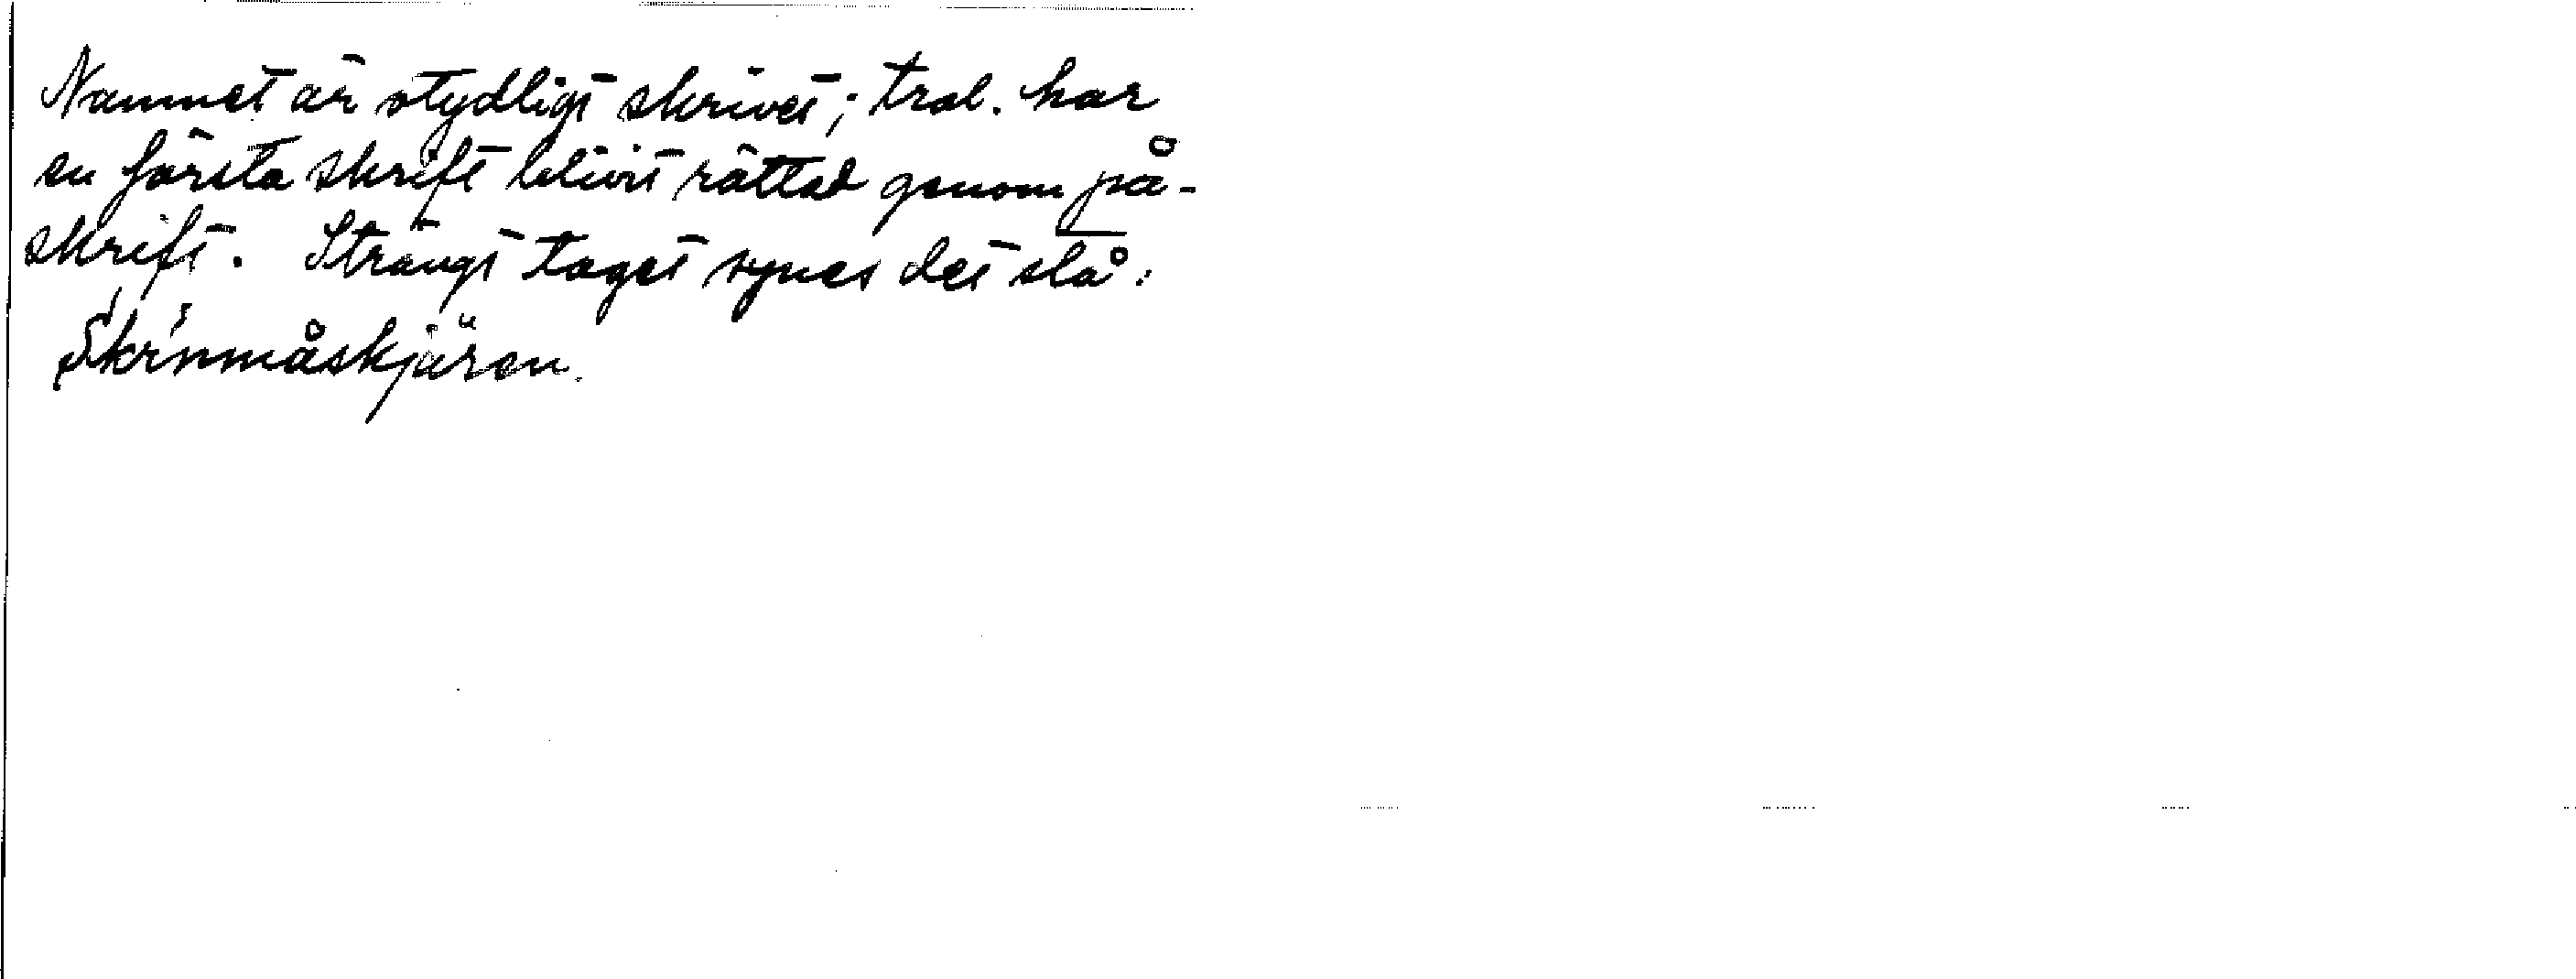 Namnet är otydligt skrivet; trol. har
en första skrift blivit rättad genom på-
skrift. Strängt taget synes det stå:
Skrinmåskjären.